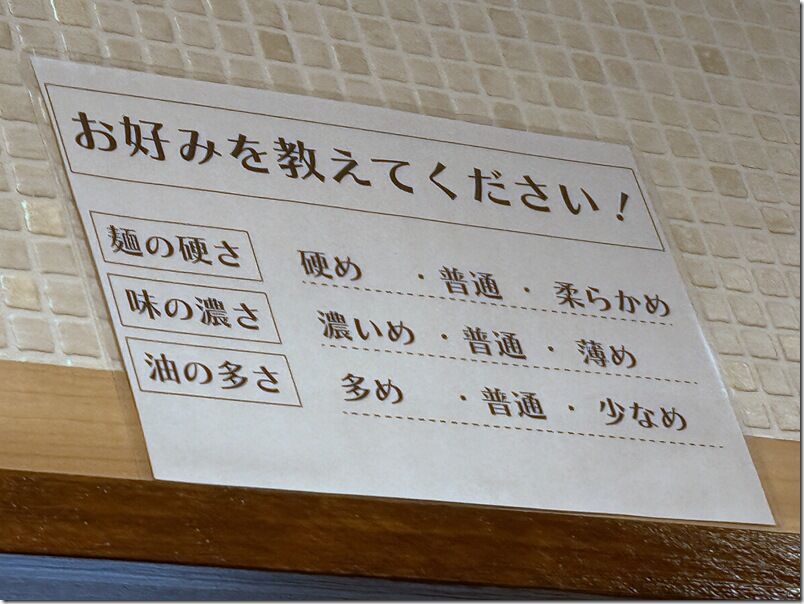 お好みを教えてください！
麺の硬さ 硬め ・普通 ・ 柔らかめ
味の濃さ 濃いめ ・普通 ・ 薄め
油の多さ 多め ・普通 ・ 少なめ